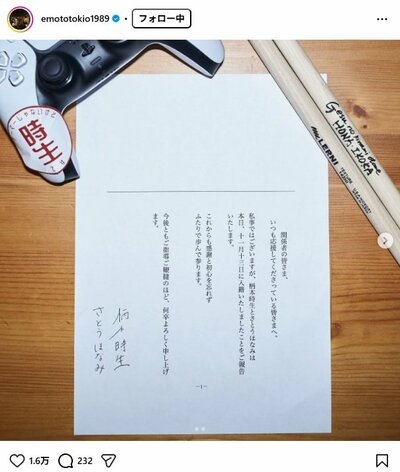 emototokio1989
フォロー中
時生
関係者の皆さま、
いつも応援してくださっている皆さまへ。
私事ではございますが、柄本時生とさとうほなみは
本日、十一月十三日に入籍いたしましたことをご報告
いたします。
これからも感謝と初心を忘れず
ふたりで歩んで参ります。
今後ともご指導ご鞭撻のほど、何卒よろしく申し上げ
ます。
柄本時生
さとうほなみ
—1—
1.6万
232